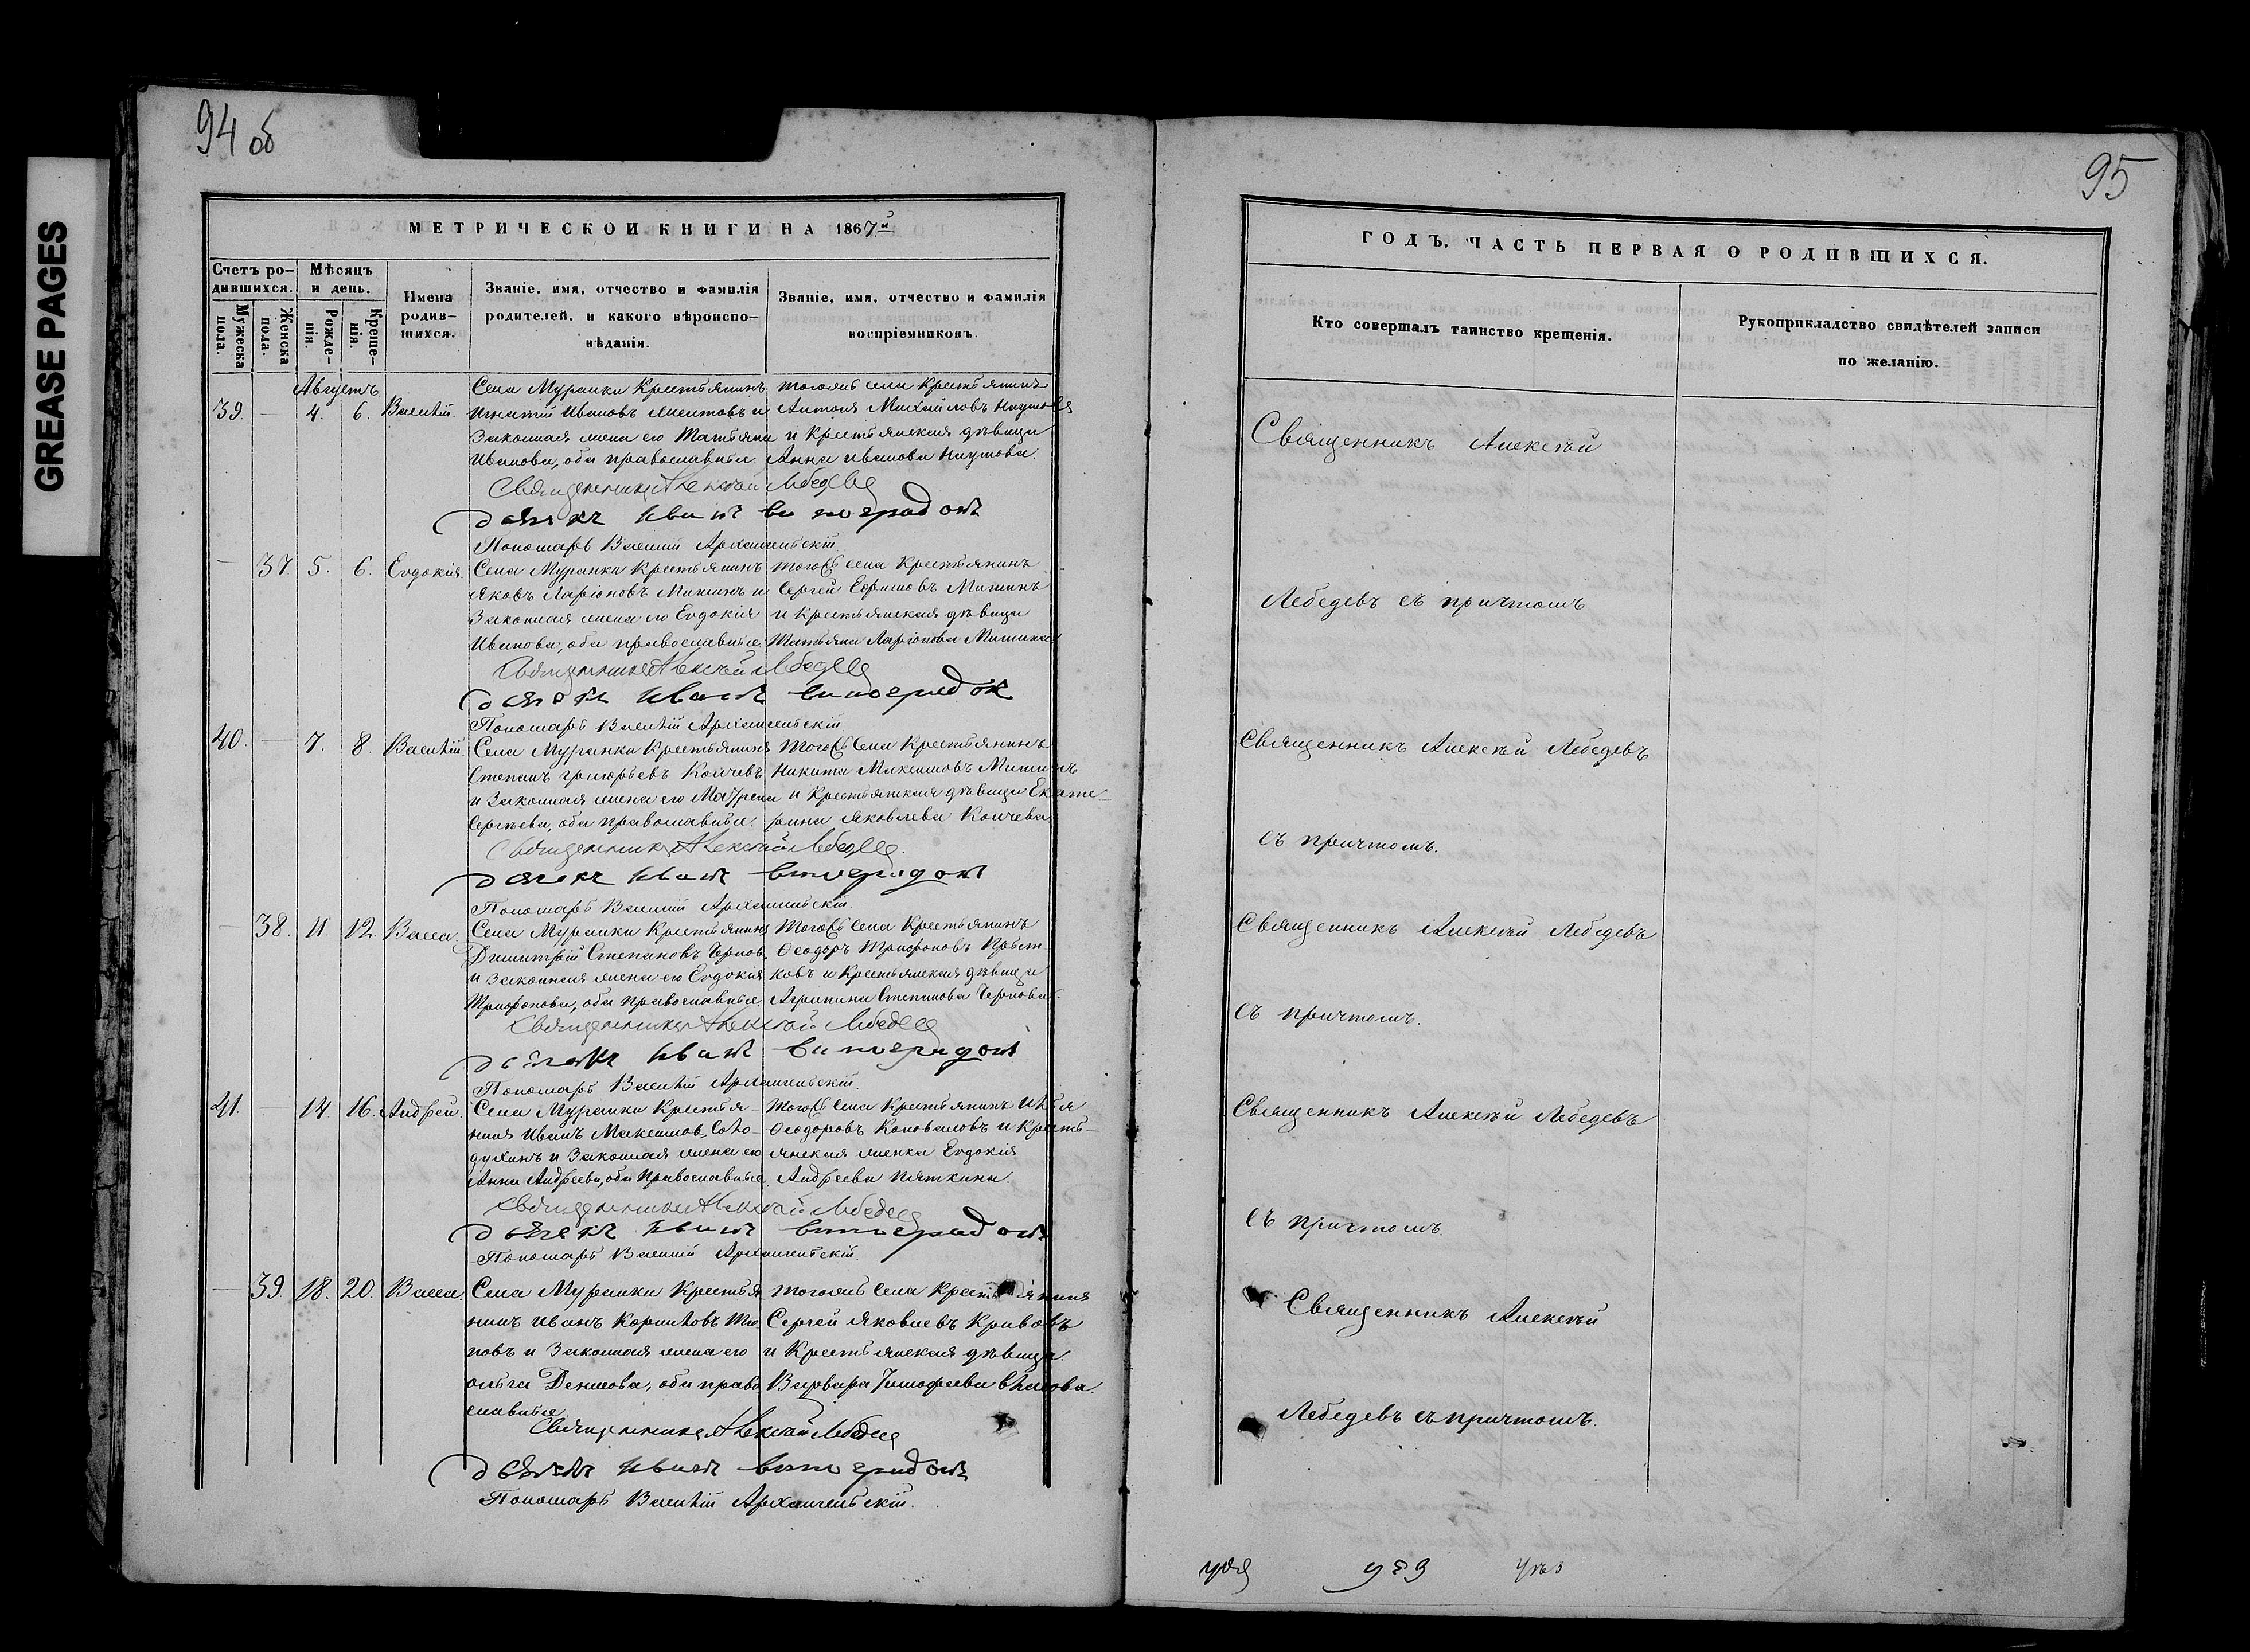 GREASE PAGES
94 об
МЕТРИЧЕСКОЙ КНИГИ НА 1867й
Счетъ родившихся.
Мужеска пола.
Женска пола.
Мѣсяцъ и день.
Рожденія.
Крещенія.
Имена родившихся.
Званіе, имя, отчество и фамилія
родителей, и какого вѣроиспо-
вѣданія.
Званіе, имя, отчество и фамилія
воспріемниковъ.
Августъ
39. — 4. 6. Василій.
Села Муранки Крестьянинъ
Игнатій Ивановъ и
Законная жена его Татьяна
Иванова, оба православные.
тогожъ села Крестьянинъ
Антонъ Михайловъ Наумовъ
и Крестьянская дѣвица
Анна Иванова Наумова.
Священникъ Алексѣй Лебедевъ
Дьячекъ Иванъ Виноградовъ
Пономарь Василій Архангельскій
— 37. 5. 6. Евдокія.
Села Муранки Крестьянинъ
Яковъ Ларіоновъ Митинъ и
Законная жена его Евдокія
Иванова, оба православные
тогожъ села Крестьянинъ
Сергей Ефимовъ Митинъ
и Крестьянская дѣвица
Татьяна Ларіонова Митина
Священникъ Алексѣй Лебедевъ
Дьячекъ Иванъ Виноградовъ
Пономарь Василій Архангельскій
40. — 7. 8. Василій.
Села Муранки Крестьянинъ
Степанъ Григорьевъ Копчевъ
и Законная жена его Матрена
Сергѣева, оба православные.
тогожъ села Крестьянинъ
Никита Максимовъ Митинъ
и Крестьянская дѣвица Екате-
рина Яковлева Копчева
Священникъ Алексѣй Лебедевъ
Дьячекъ Иванъ Виноградовъ
Пономарь Василій Архангельскій.
— 38. 11. 12. Васса.
Села Муранки Крестьянинъ
Димитрій Степановъ Черновъ
и Законная жена его Евдокія
Трифонова, оба православные.
тогожъ села Крестьянинъ
Ѳеодоръ Трифоновъ
ковъ и Крестьянская дѣвица
Агрипина Степанова Чернова.
Священникъ Алексѣй Лебедевъ
Дьячекъ Иванъ Виноградовъ
Пономарь Василій Архангельскій.
41. — 14. 16. Андрей.
Села Муранки Крестья-
нинъ Иванъ Максимовъ Соло-
духинъ и Законная жена его
Анна Андреева, оба Православные.
тогожъ села Крестьянинъ Илья
Ѳеодоровъ Коноваловъ и Кресть-
янская женка Евдокія
Андреева Пяткина.
Священникъ Алексѣй Лебедевъ
Дьячекъ Иванъ Виноградовъ
Пономарь Василій Архангельскій.
— 39. 18. 20. Васса.
Села Муранки Крестья
нинъ Иванъ Корниловъ
повъ и Законная жена его
Ольга Денисова, оба право
славные
тогожъ села Крестьянинъ
Сергей Яковлевъ Кривовъ
и Крестьянская дѣвица
Варвара Тимофеева Власова.
Священникъ Алексѣй Лебедевъ
Дьячекъ Иванъ Виноградовъ
Пономарь Василій Архангельскій.
95
ГОДЪ, ЧАСТЬ ПЕРВАЯ О РОДИВШИХСЯ.
Кто совершалъ таинство крещенія.
Рукоприкладство свидѣтелей записи
по желанію.
Священникъ Алексѣй
Лебедевъ съ причтомъ
Священникъ Алексѣй Лебедевъ
съ причтомъ.
Священникъ Алексѣй Лебедевъ
съ причтомъ.
Священникъ Алексѣй Лебедевъ
съ причтомъ.
Священникъ Алексѣй
Лебедевъ съ причтомъ.